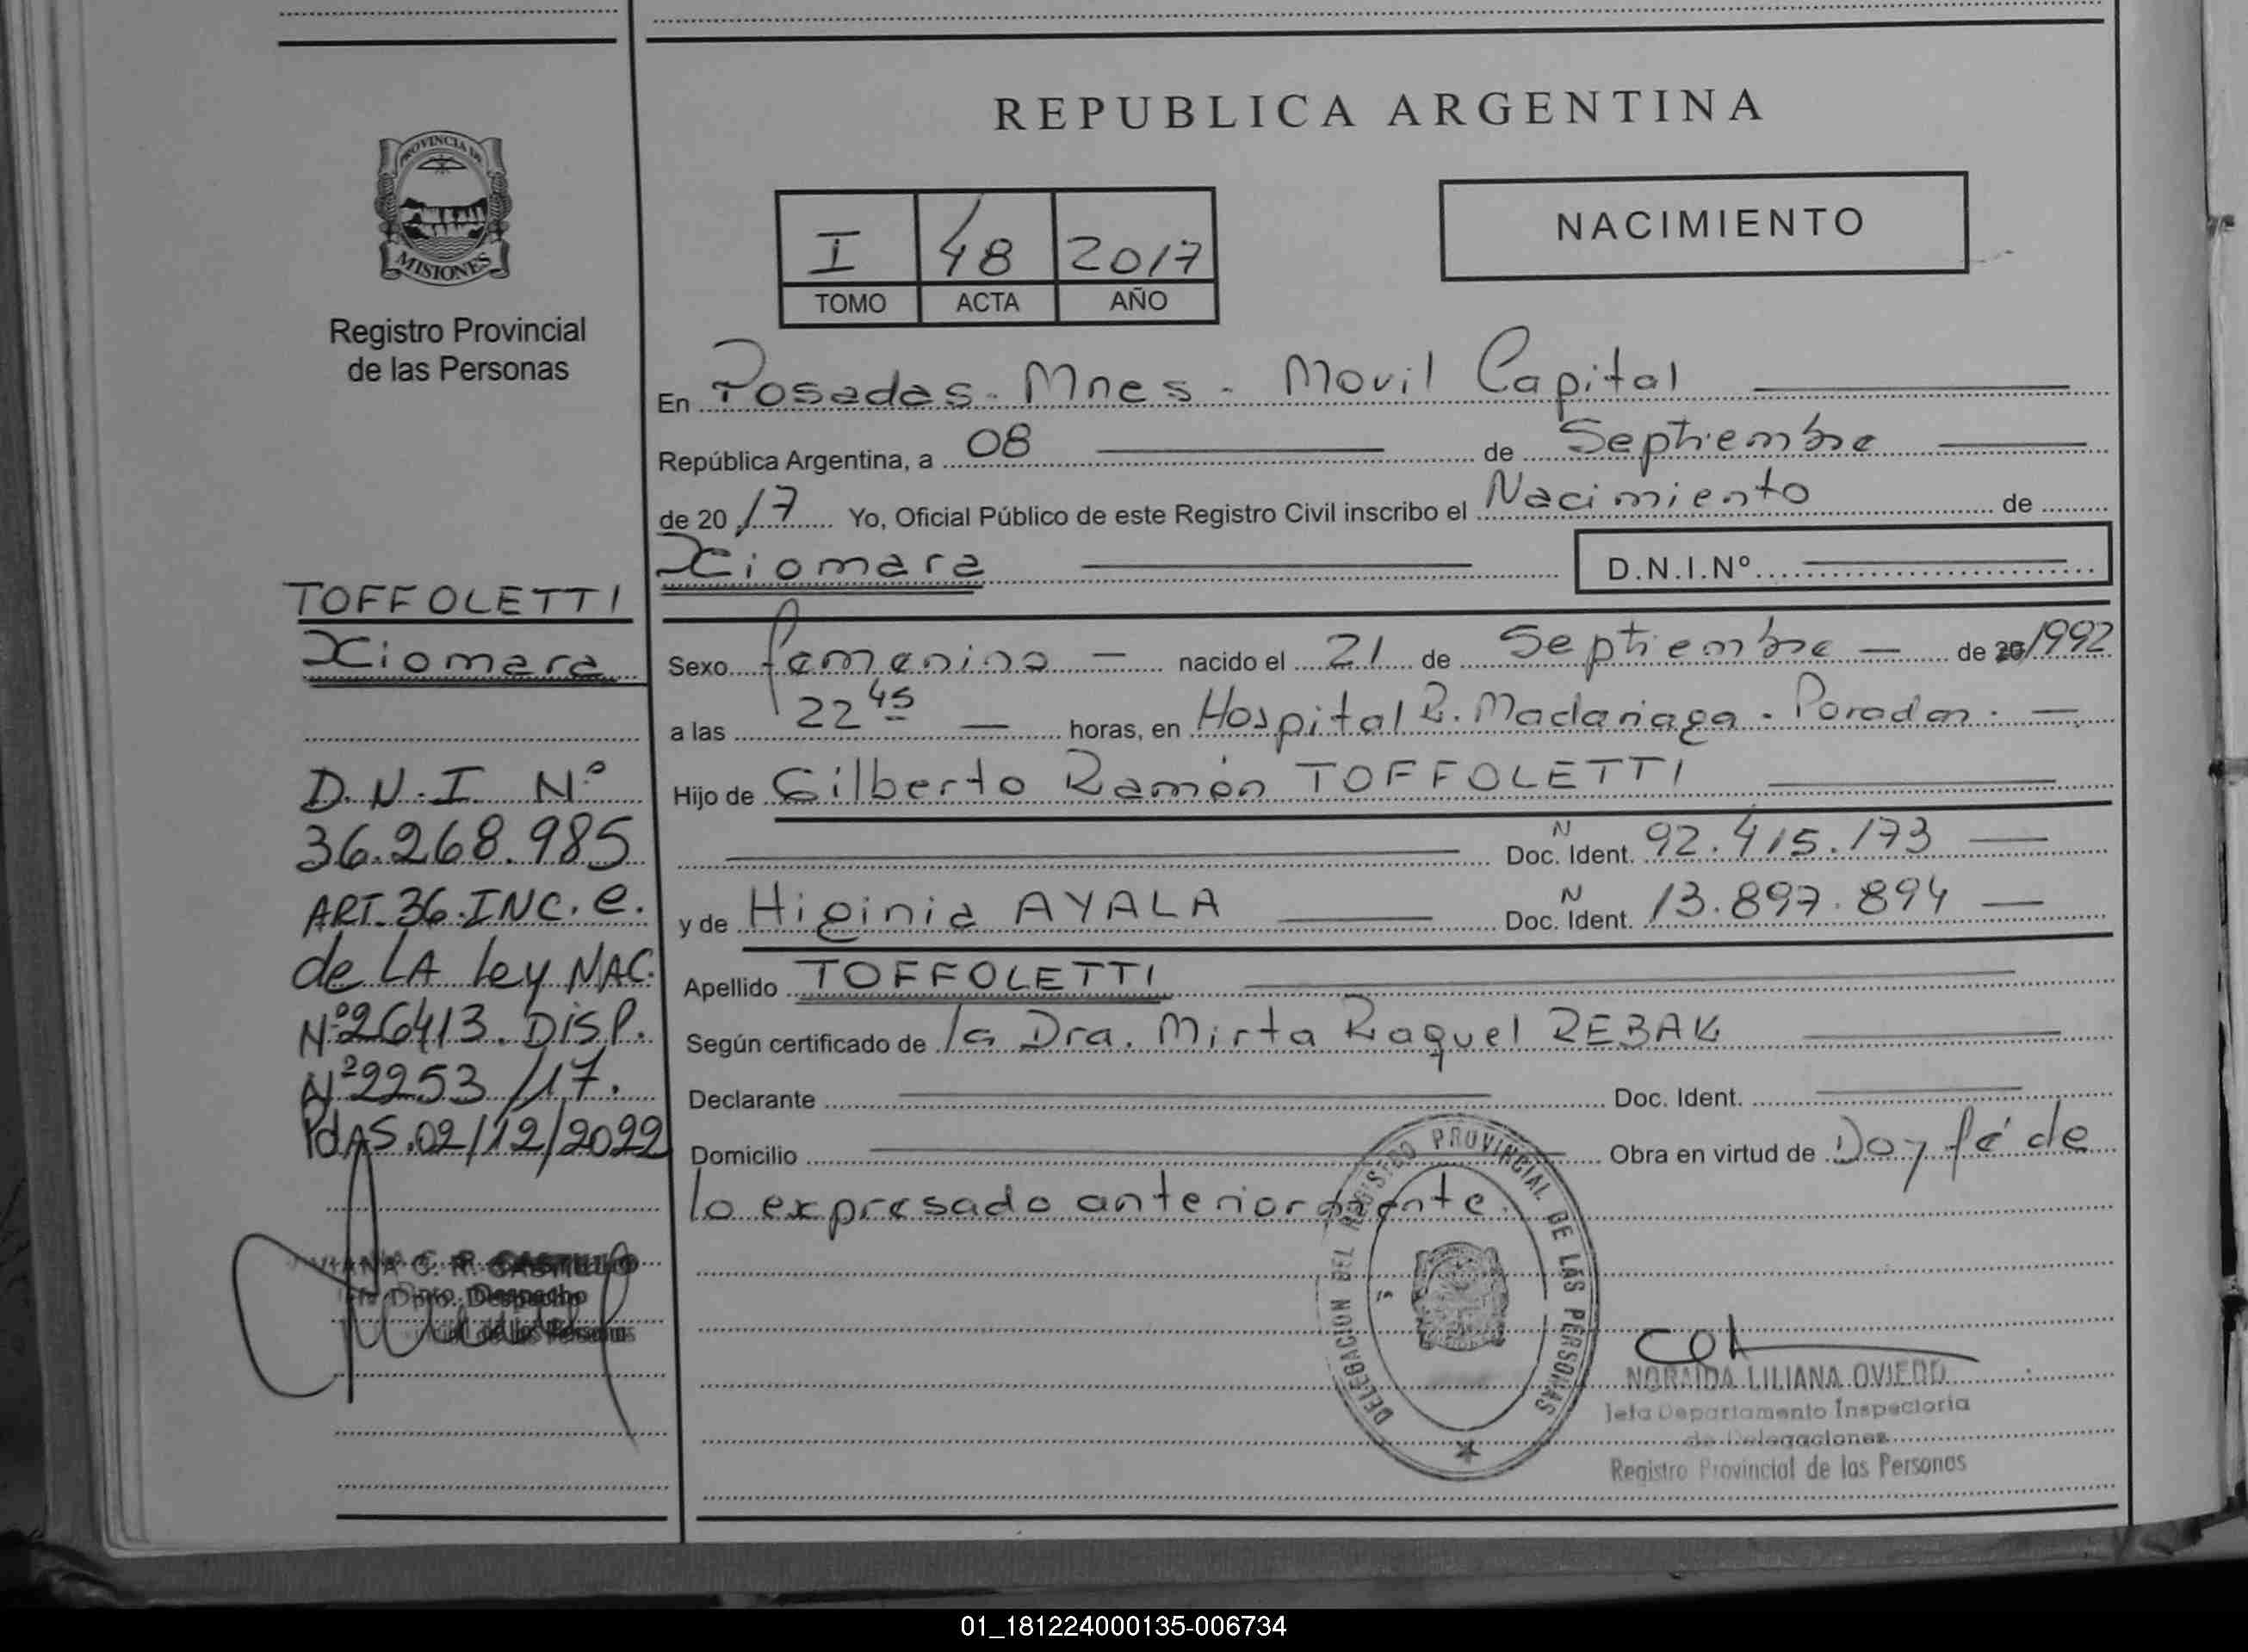 PROVINCIA DE
MISIONES
Registro Provincial
de las Personas
TOFFOLETTI
Xiomara
D.N.I Nº
36.268.985
ART. 36. INC. e.
de LA Ley NAC.
Nº 26413. DISP.
Nº 2253/17.
PdAS. 02/12/2022
C. R. CASTILLO
Dpto. Despacho
de las Personas
REPUBLICA ARGENTINA
I 48 2017
TOMO ACTA AÑO
NACIMIENTO
En Posadas - Mnes - Movil Capital
República Argentina, a 08 de Septiembre
de 20 17 Yo, Oficial Público de este Registro Civil inscribo el Nacimiento de
Xiomara D.N.I.Nº
Sexo femenino nacido el 21 de Septiembre de 20 1992
a las 22 45 horas, en Hospital R. Madariaga - Posadas.
Hijo de Gilberto Ramón TOFFOLETTI
Doc. Ident. N 92.415.173
y de Higinia AYALA Doc. Ident. N 13.897.894
Apellido TOFFOLETTI
Según certificado de la Dra. Mirta Raquel REBAK
Declarante Doc. Ident.
Domicilio Obra en virtud de Doy fé de
lo expresado anteriormente.
DELEGACION DEL REGISTRO PROVINCIAL DE LAS PERSONAS
NORAIDA LILIANA OVIEDO
Jefa Departamento Inspectoria
de Delegaciones
Registro Provincial de las Personas
01_181224000135-006734